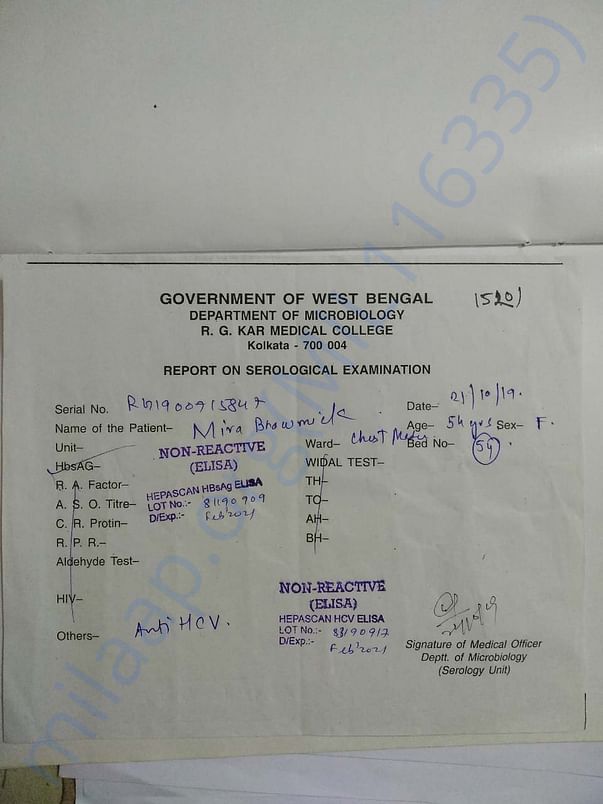 milaap.org(MI-116335)
GOVERNMENT OF WEST BENGAL 1520)
DEPARTMENT OF MICROBIOLOGY
R. G. KAR MEDICAL COLLEGE
Kolkata - 700 004
REPORT ON SEROLOGICAL EXAMINATION
Serial No. Date– 21/10/19.
Name of the Patient– Mira Bhowmick Age– 54 yrs Sex– F.
Unit– Ward– Chest Bed No– 54.
NON-REACTIVE
(ELISA)
HbsAG– WIDAL TEST–
R. A. Factor– TH–
HEPASCAN HBsAg ELISA
A. S. O. Titre– LOT No.:- 81190909 TO–
D/Exp.:- Feb'2021
C. R. Protin– AH–
R. P. R.– BH–
Aldehyde Test–
HIV–
NON-REACTIVE
(ELISA)
HEPASCAN HCV ELISA
LOT No.:- 83190917
D/Exp.:- Feb'2021
Others– Anti HCV.
Signature of Medical Officer
Deptt. of Microbiology
(Serology Unit)